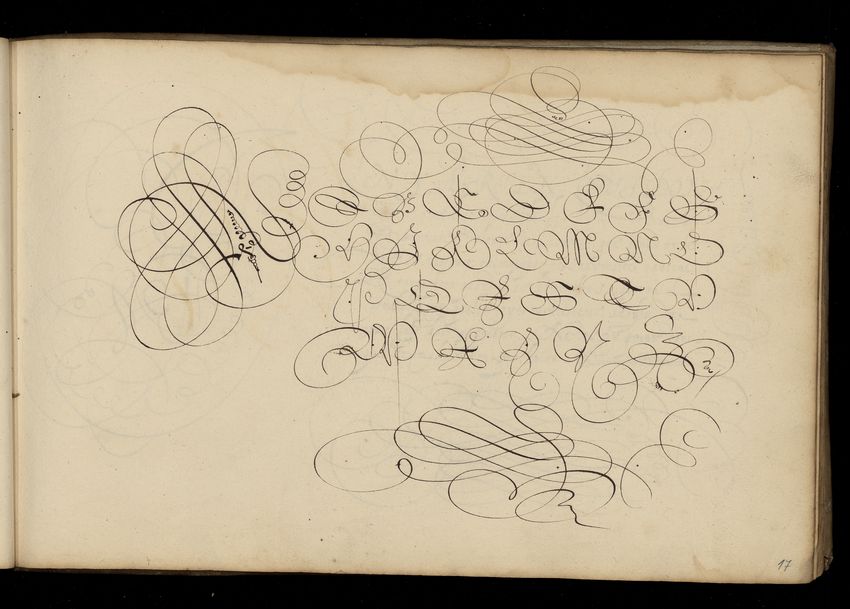 A B C D E F G
H I K L M N O
P Q R S T V
W X Y Z
17